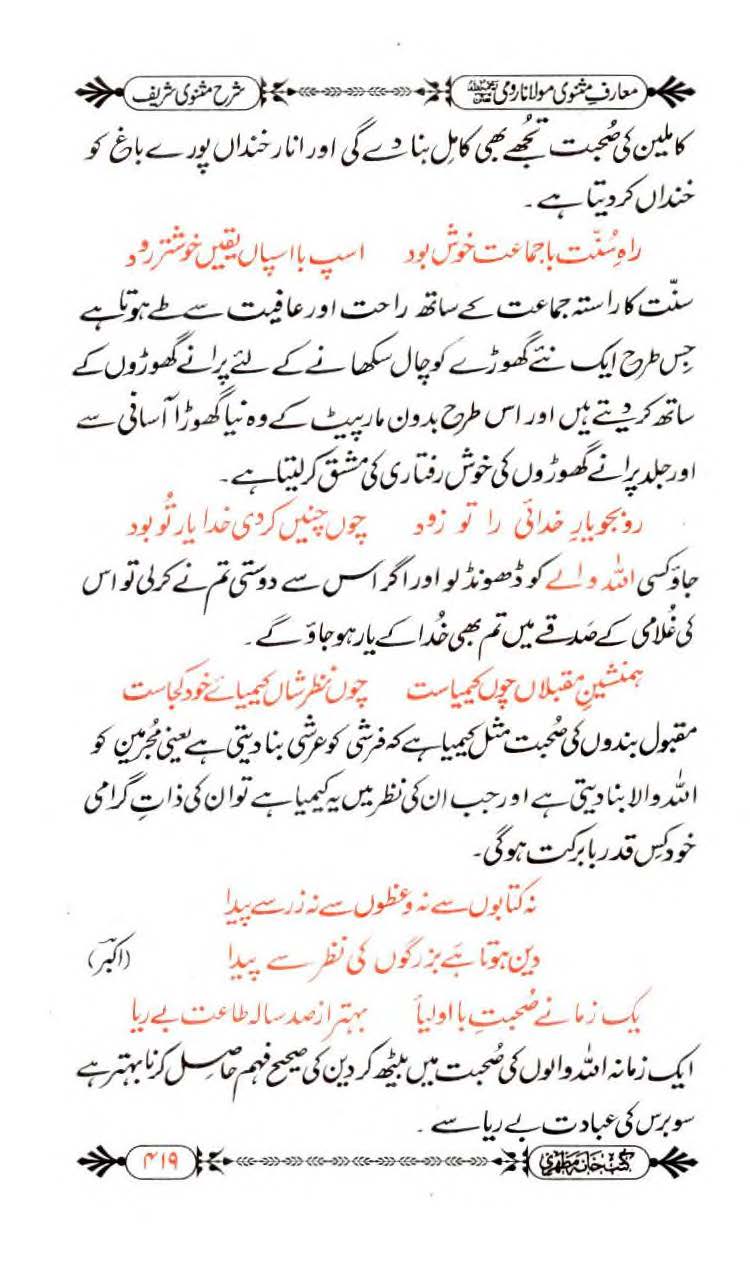 معارفِ مثنوی مولانا رومی رحمۃ اللہ تعالیٰ علیہ
شرح مثنوی شریف
کاملین کی صُحبت تجُھے بھی کامِل بنا دے گی اور انار خنداں پورے باغ کو
خنداں کر دیتا ہے ۔
راہِ سُنّت با جماعت خوش بود اسپ با اسپاں یقیں خوشتر رود
سنّت کا راستہ جماعت کے ساتھ راحت اور عافیت سے طے ہوتا ہے
جس طرح ایک نئے گھوڑے کو چال سکھانے کے لئے پرانے گھوڑوں کے
ساتھ کر دیتے ہیں اور اس طرح بدون مار پیٹ کے وہ نیا گھوڑا آسانی سے
اور جلد پرانے گھوڑوں کی خوش رفتاری کی مشق کر لیتا ہے۔
رو بجو یارِ خدائی را تو زود چوں چنیں کردی خدا یارِ تُو بود
جاؤ کسی اللہ والے کو ڈھونڈ لو اور اگر اس سے دوستی تم نے کر لی تو اس
کی غُلامی کے صَدقے میں تم بھی خُدا کے یار ہو جاؤ گے ۔
ہمنشینِ مقبلاں چوں کیمیاست چوں نظر شاں کیمیائے خود کجاست
مقبول بندوں کی صُحبت مثل کیمیا ہے کہ فرشی کو عرشی بنا دیتی ہے یعنی مُجرمین کو
اللہ والا بنا دیتی ہے اور جب ان کی نظر میں یہ کیمیا ہے تو ان کی ذاتِ گرامی
خود کس قدر با برکت ہوگی۔
نہ کتابوں سے نہ وعظوں سے نہ زر سے پیدا
دین ہوتا ہَے بزرگوں کی نظر سے پیدا (اکبرؔ)
یک زمانے صُحبتِ با اولیاؑ بہتر از صد سالہ طاعت بے ریا
ایک زمانہ اللہ والوں کی صُحبت میں بیٹھ کر دین کی صحیح فہم حاصِل کرنا بہتر ہے
سو برس کی عبادت بے ریا سے ۔
کتب خانہ مظہری
۴۱۹